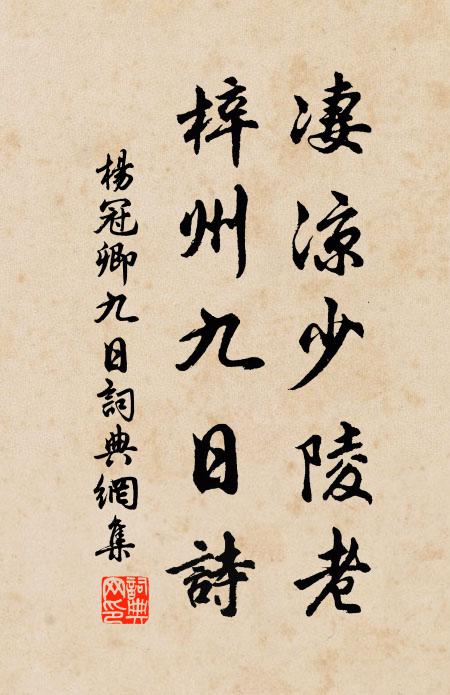 凄凉少陵老
梓州九日詩
楊冠卿九日詞典網集
詞典網印